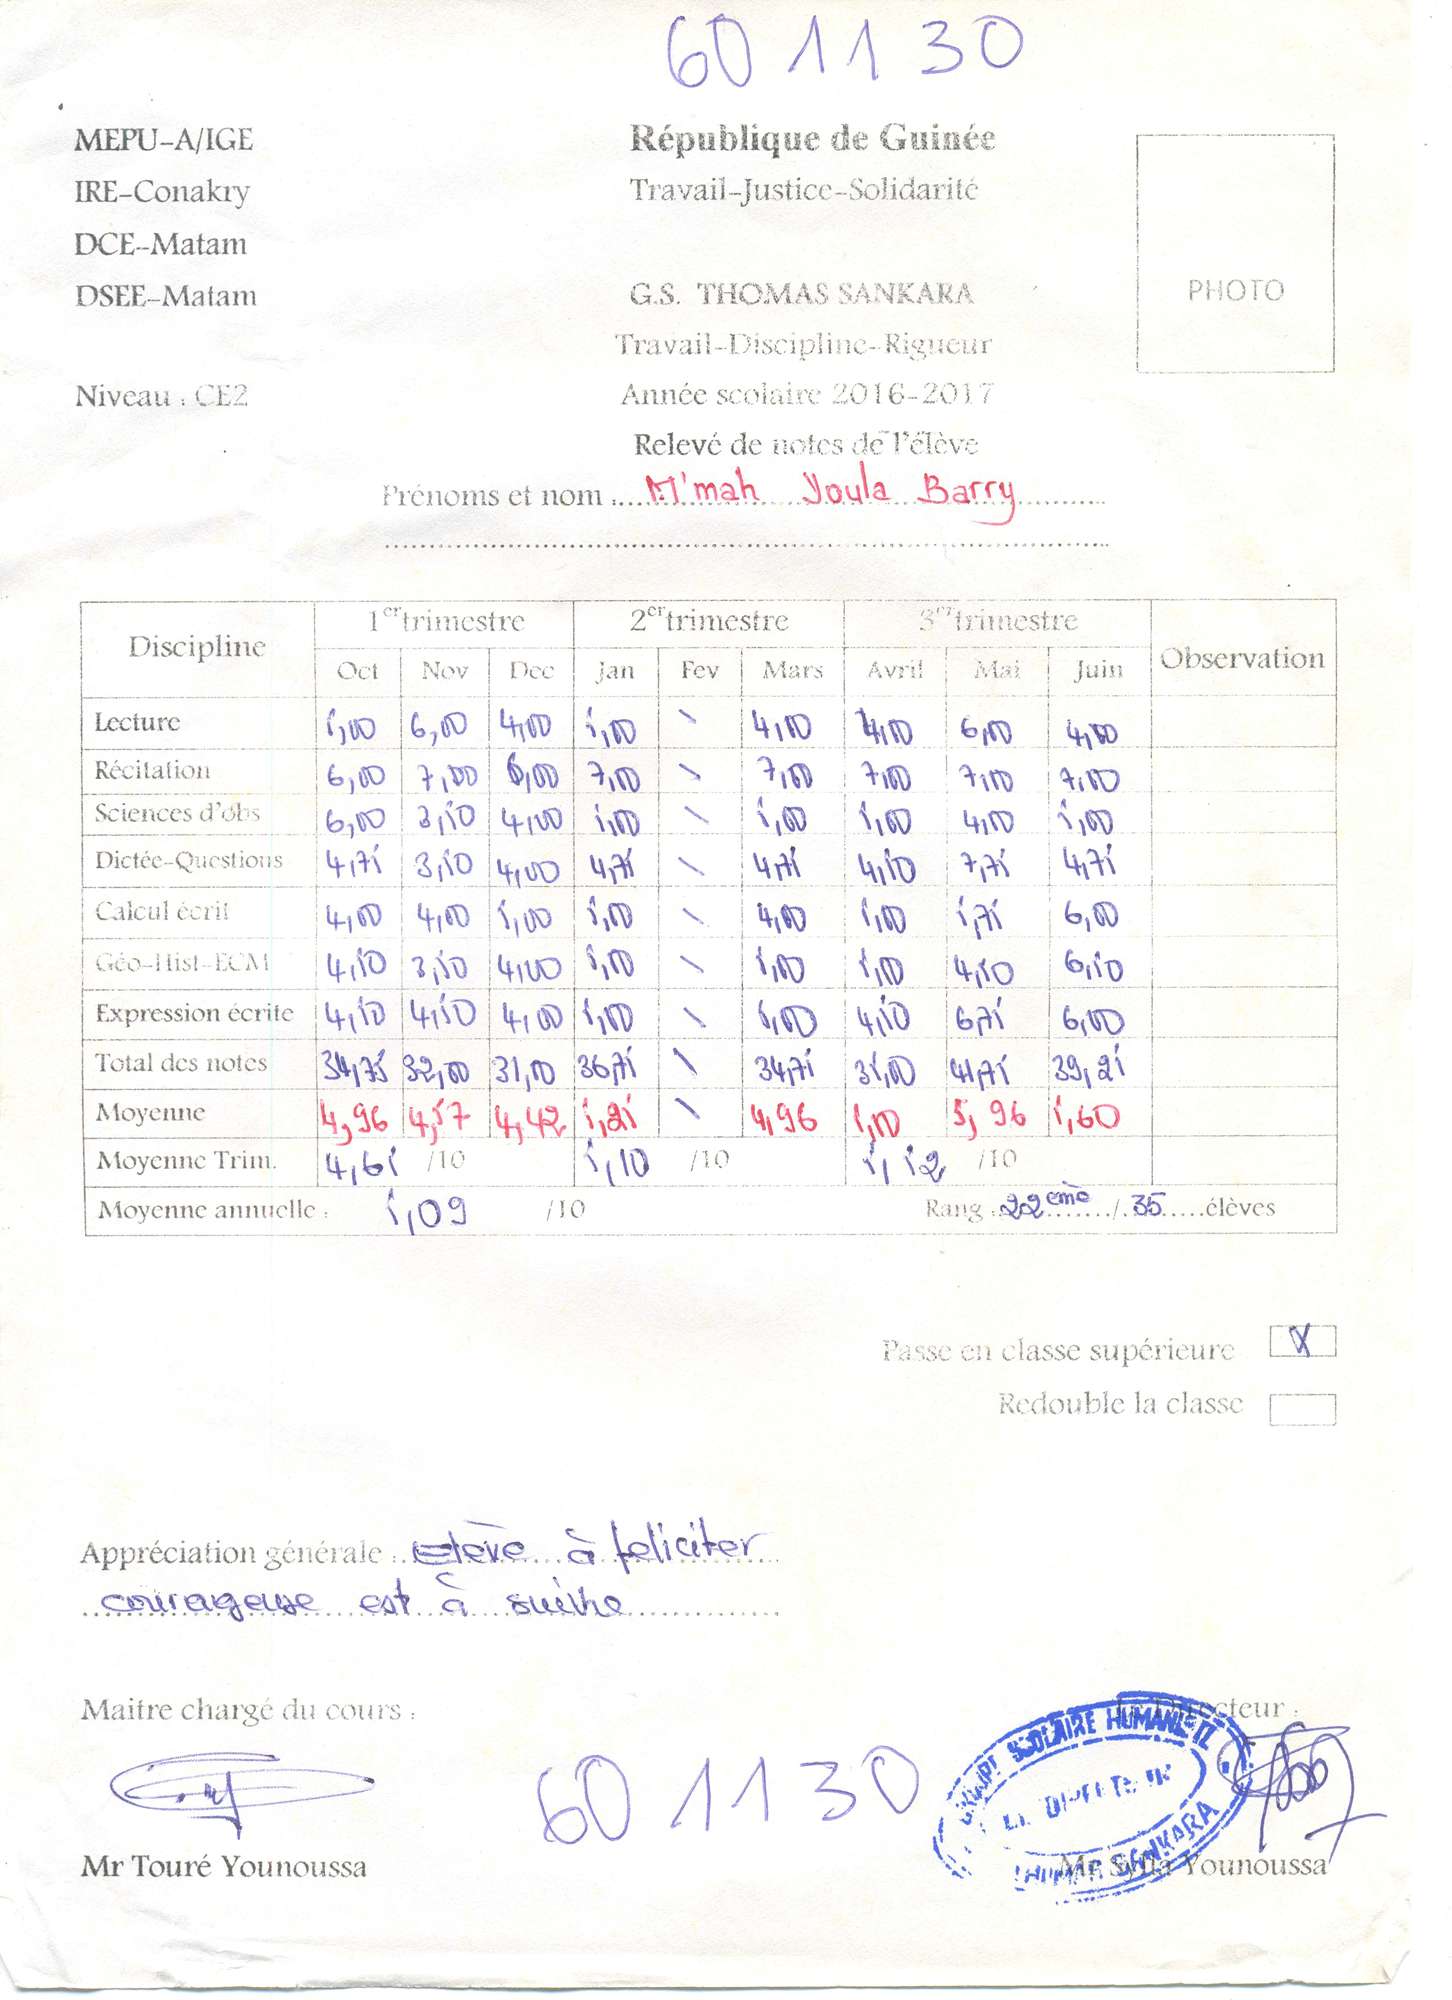 60 11 30
MEPU-A/IGE République de Guinée
IRE-Conakry Travail-Justice-Solidarité
DCE-Matam
DSEE-Matam G.S. THOMAS SANKARA PHOTO
Travail-Discipline-Rigueur
Niveau : CE2 Année scolaire 2016-2017
Relevé de notes de l'élève
Prénoms et nom : M'mah Youla Barry
Discipline 1er trimestre 2er trimestre 3er trimestre Observation
Oct Nov Dec Jan Fev Mars Avril Mai Juin
Lecture 5,00 6,00 4,00 5,00 \ 4,00 4,00 6,00 4,00
Récitation 6,00 7,00 6,00 7,00 \ 7,00 7,00 7,00 7,00
Sciences d'obs 6,00 3,50 4,00 5,00 \ 5,00 5,00 4,00 5,00
Dictée-Questions 4,75 3,50 4,00 4,75 \ 4,75 4,50 7,75 4,75
Calcul écrit 4,00 4,00 5,00 5,00 \ 4,00 5,00 5,75 6,00
Géo-Hist-ECM 4,50 3,50 4,00 5,00 \ 5,00 5,00 4,50 6,50
Expression écrite 4,50 4,50 4,00 5,00 \ 5,00 4,50 6,75 6,00
Total des notes 34,75 32,00 31,00 36,75 \ 34,75 35,00 41,75 39,25
Moyenne 4,96 4,57 4,42 5,25 \ 4,96 5,00 5,96 5,60
Moyenne Trim. 4,65 /10 5,10 /10 5,52 /10
Moyenne annuelle : 5,09 /10 Rang : 22ème / 35 élèves
Passe en classe supérieure X
Redouble la classe
Appréciation générale : Elève à feliciter
courageuse est à suivre
Maitre chargé du cours : Le Directeur :
GROUPE SCOLAIRE
LE DIRECTEUR
THOMAS SANKARA
60 11 30
Mr Touré Younoussa Mr Sylla Younoussa